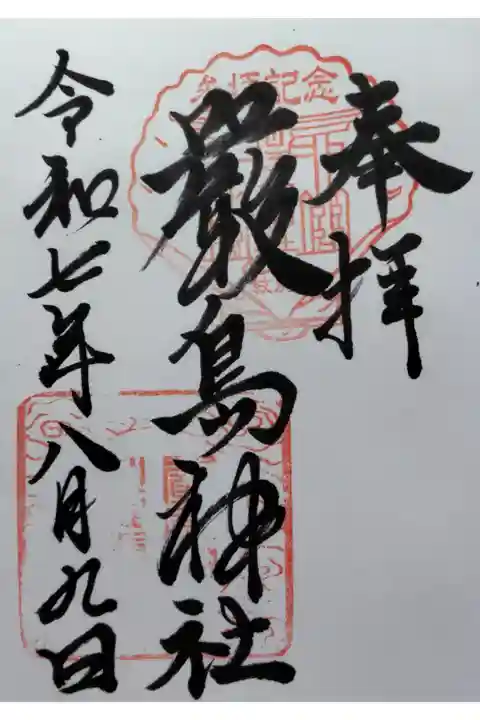 奉拝
参拝記念
厳島神社
令和七年八月九日